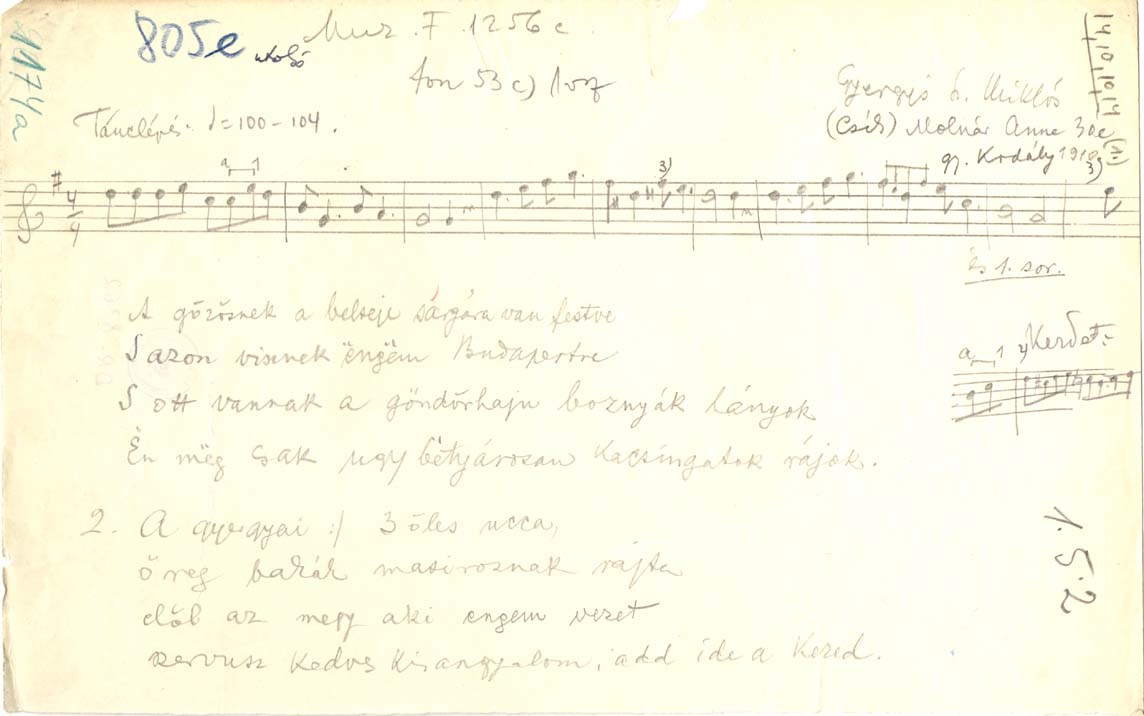 805e utolsó Muz. F. 1256c.
fon 53 c) 1 vsz
9174a
14, 10, 10, 14 (1.)
Gyergyó sz. Miklós
(Csík) Molnár Anna 30é
gy. Kodály 1910
Tánclépés ♩=100-104.
4/4
a 1
3)
3)
és 1. sor.
A gőzösnek a belseje sárgára van festve
S azon visznek ëngëm Budapestre
S ott vannak a göndörhaju boznyák lányok
Én mëg csak ugy bëtyárosan kacsingatok rájok.
a 1 Kezdet:
2. A gyergyai :/ 3 öles ucca,
öreg bakák masiroznak rajta
elől az megy aki engem vezet
szervusz kedves kisangyalom, add ide a kezed.
1.5.2